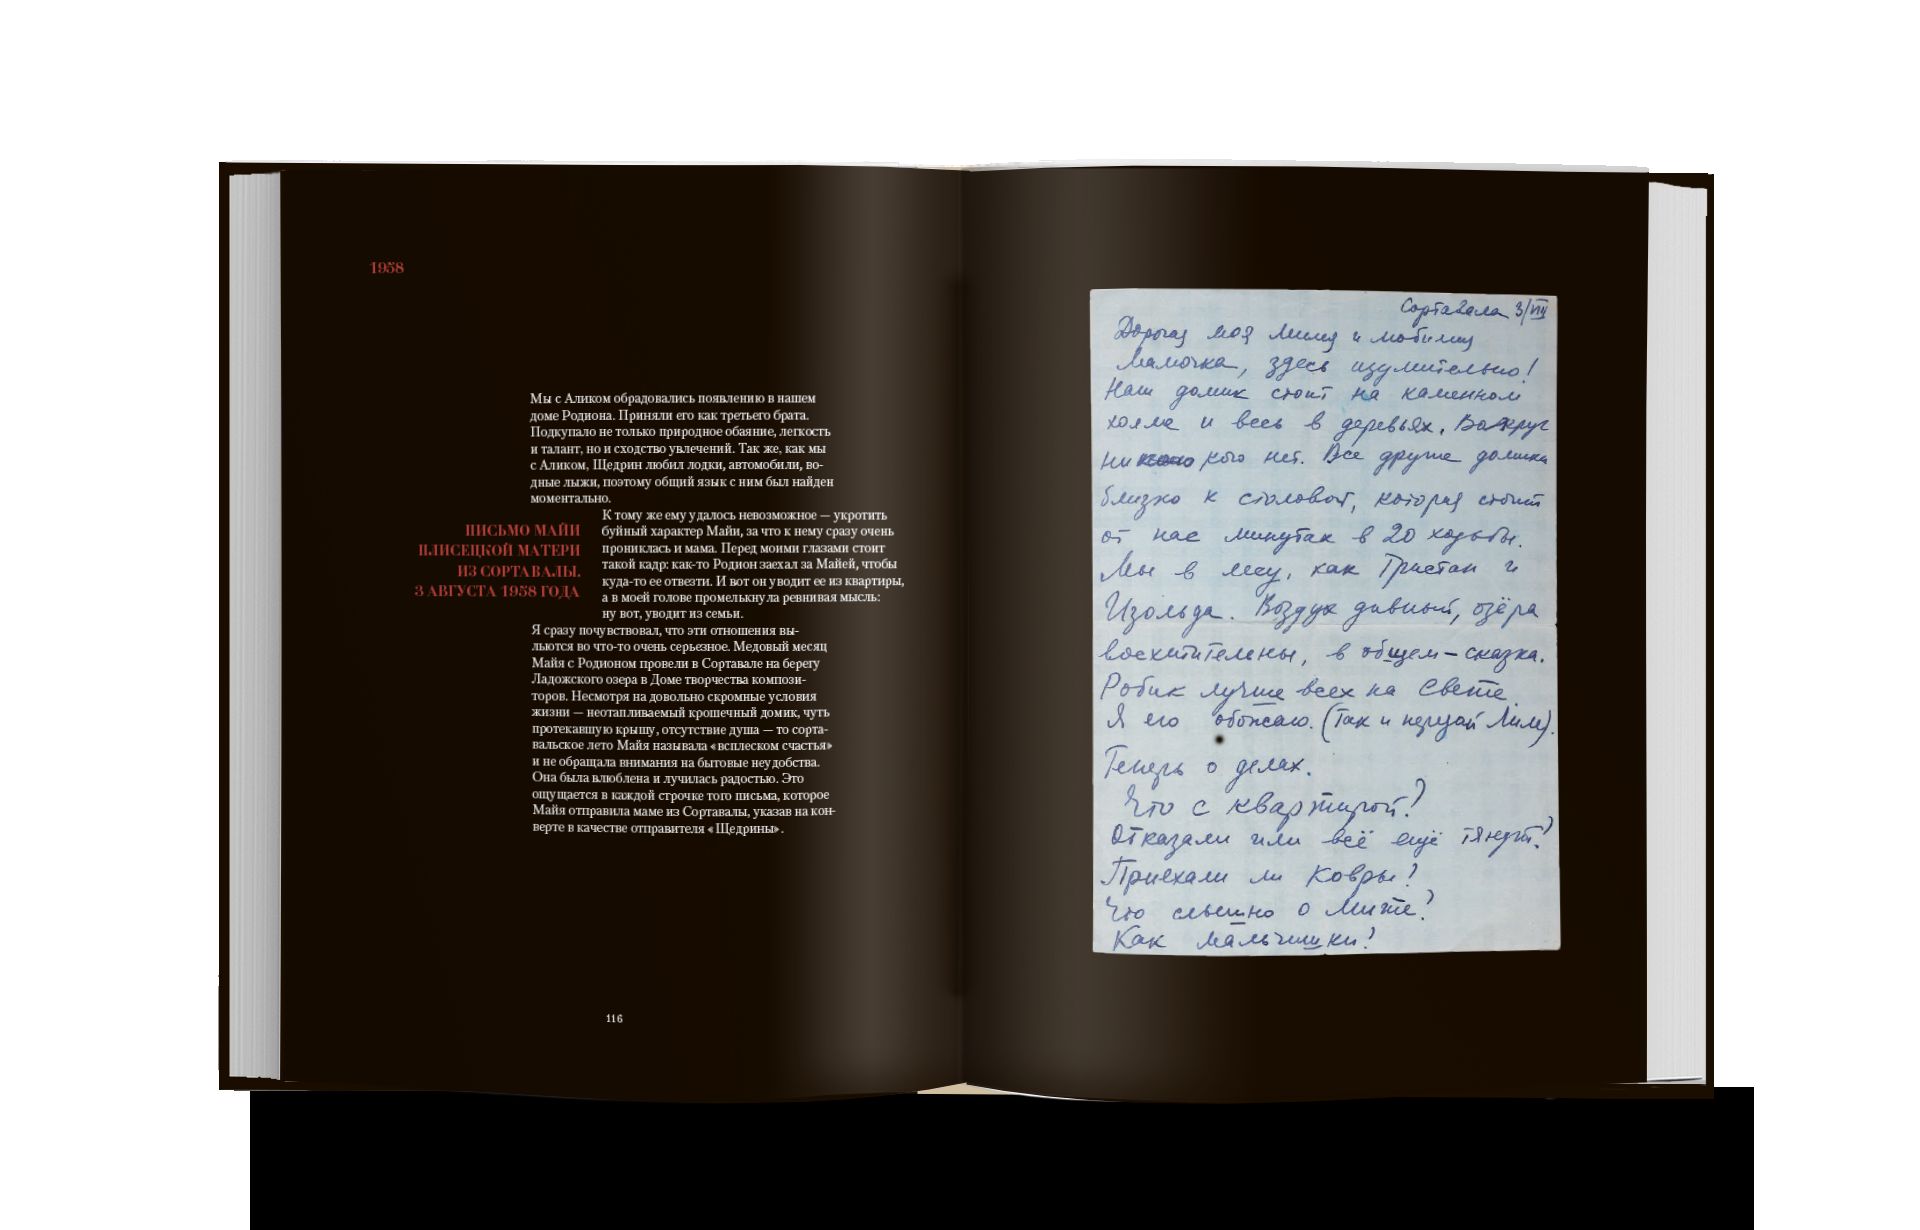 1958
Мы с Аликом обрадовались появлению в нашем
доме Родиона. Приняли его как третьего брата.
Подкупало не только природное обаяние, легкость
и талант, но и сходство увлечений. Так же, как мы
с Аликом, Щедрин любил лодки, автомобили, во-
дные лыжи, поэтому общий язык с ним был найден
моментально.
К тому же ему удалось невозможное — укротить
буйный характер Майи, за что к нему сразу очень
прониклась и мама. Перед моими глазами стоит
такой кадр: как-то Родион заехал за Майей, чтобы
куда-то ее отвезти. И вот он уводит ее из квартиры,
а в моей голове промелькнула ревнивая мысль:
ну вот, уводит из семьи.
Я сразу почувствовал, что эти отношения вы-
льются во что-то очень серьезное. Медовый месяц
Майя с Родионом провели в Сортавале на берегу
Ладожского озера в Доме творчества компози-
торов. Несмотря на довольно скромные условия
жизни — неотапливаемый крошечный домик, чуть
протекавшую крышу, отсутствие душа — то сорта-
вальское лето Майя называла «всплеском счастья»
и не обращала внимания на бытовые неудобства.
Она была влюблена и лучилась радостью. Это
ощущается в каждой строчке того письма, которое
Майя отправила маме из Сортавалы, указав на кон-
верте в качестве отправителя «Щедрины».
ПИСЬМО МАЙИ
ПЛИСЕЦКОЙ МАТЕРИ
ИЗ СОРТАВАЛЫ.
3 АВГУСТА 1958 ГОДА
116
Сортавала 3/VIII
Дорогая моя милая и любимая
Мамочка, здесь изумительно!
Наш домик стоит на каменном
холме и весь в деревьях. Вокруг
ни кого нет. Все другие домики
близко к столовой, которая стоит
от нас минутах в 20 ходьбы.
Мы в лесу, как Тристан и
Изольда. Воздух дивный, озёра
восхитительны, в общем – сказка.
Робик лучше всех на свете.
Я его обожаю. (Так и передай Лиле).
Теперь о делах.
Что с квартирой?
Отказали или всё ещё тянут?
Приехали ли Ковры?
Что слышно о Мите?
Как мальчишки?